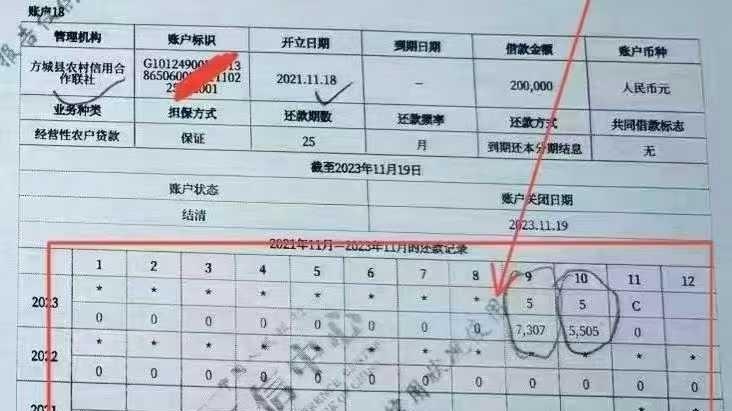 账户18
管理机构 账户标识 开立日期 到期日期 借款金额 账户币种
方城县农村信用合作联社 2021.11.18 — 200,000 人民币元
业务种类 担保方式 还款期数 还款频率 还款方式 共同借款标志
经营性农户贷款 保证 25 月 到期还本分期结息 无
截至2023年11月19日
账户状态 账户关闭日期
结清 2023.11.19
2021年11月—2023年11月的还款记录
1 2 3 4 5 6 7 8 9 10 11 12
2023 * * * * * * * * 5 5 C
0 0 0 0 0 0 0 0 7,307 5,505 0
2022 * * * * * * * * * * * *
0 0 0 0 0 0 0 0 0 0 0 0
2021 * *